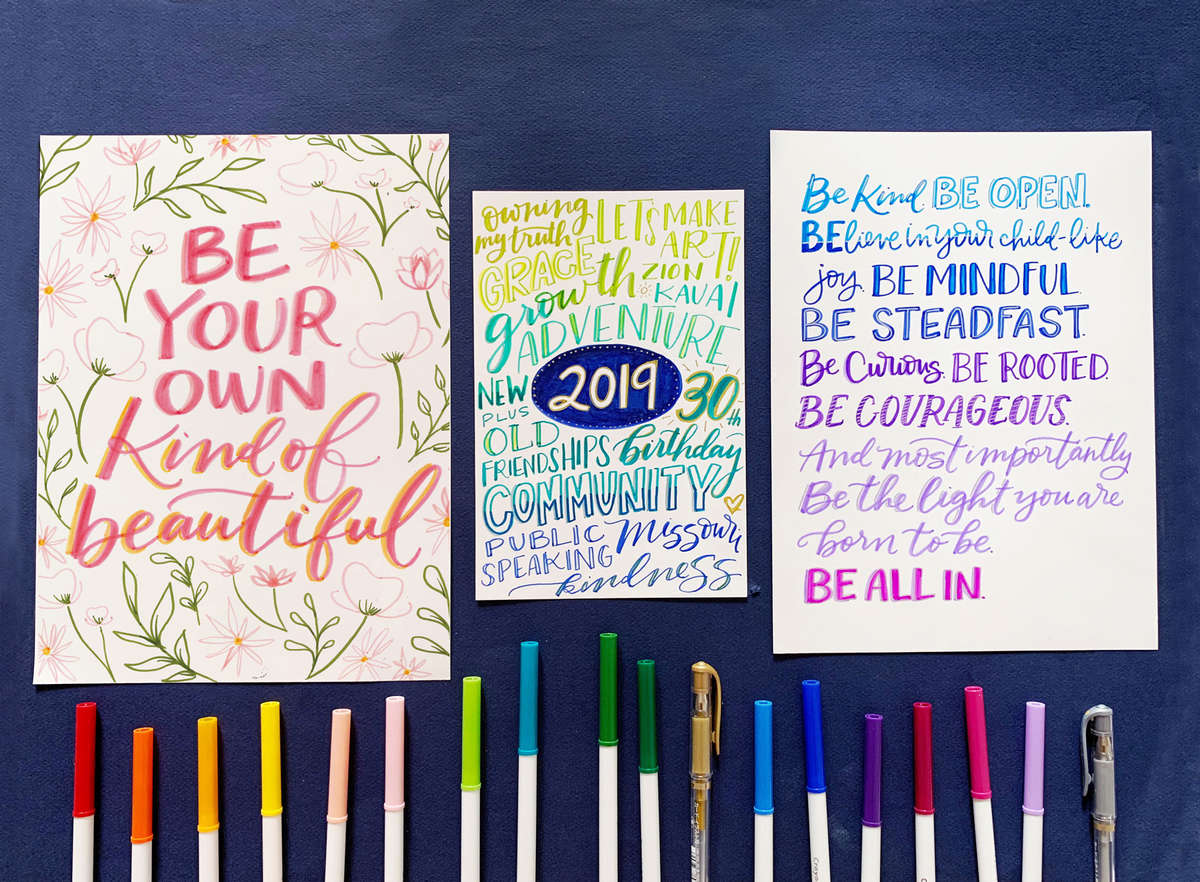 BE
YOUR
OWN
kind of
beautiful
owning
my truth
LET'S MAKE
ART!
GRACE
ZION
growth
KAUAI
ADVENTURE
NEW
PLUS
OLD
FRIENDSHIPS
2019
30th
birthday
COMMUNITY
PUBLIC
SPEAKING
Missouri
kindness
Be Kind. BE OPEN.
BElieve in your child-like
joy. BE MINDFUL.
BE STEADFAST.
Be Curious. BE ROOTED.
BE COURAGEOUS.
And most importantly
Be the light you are
born to be.
BE ALL IN.